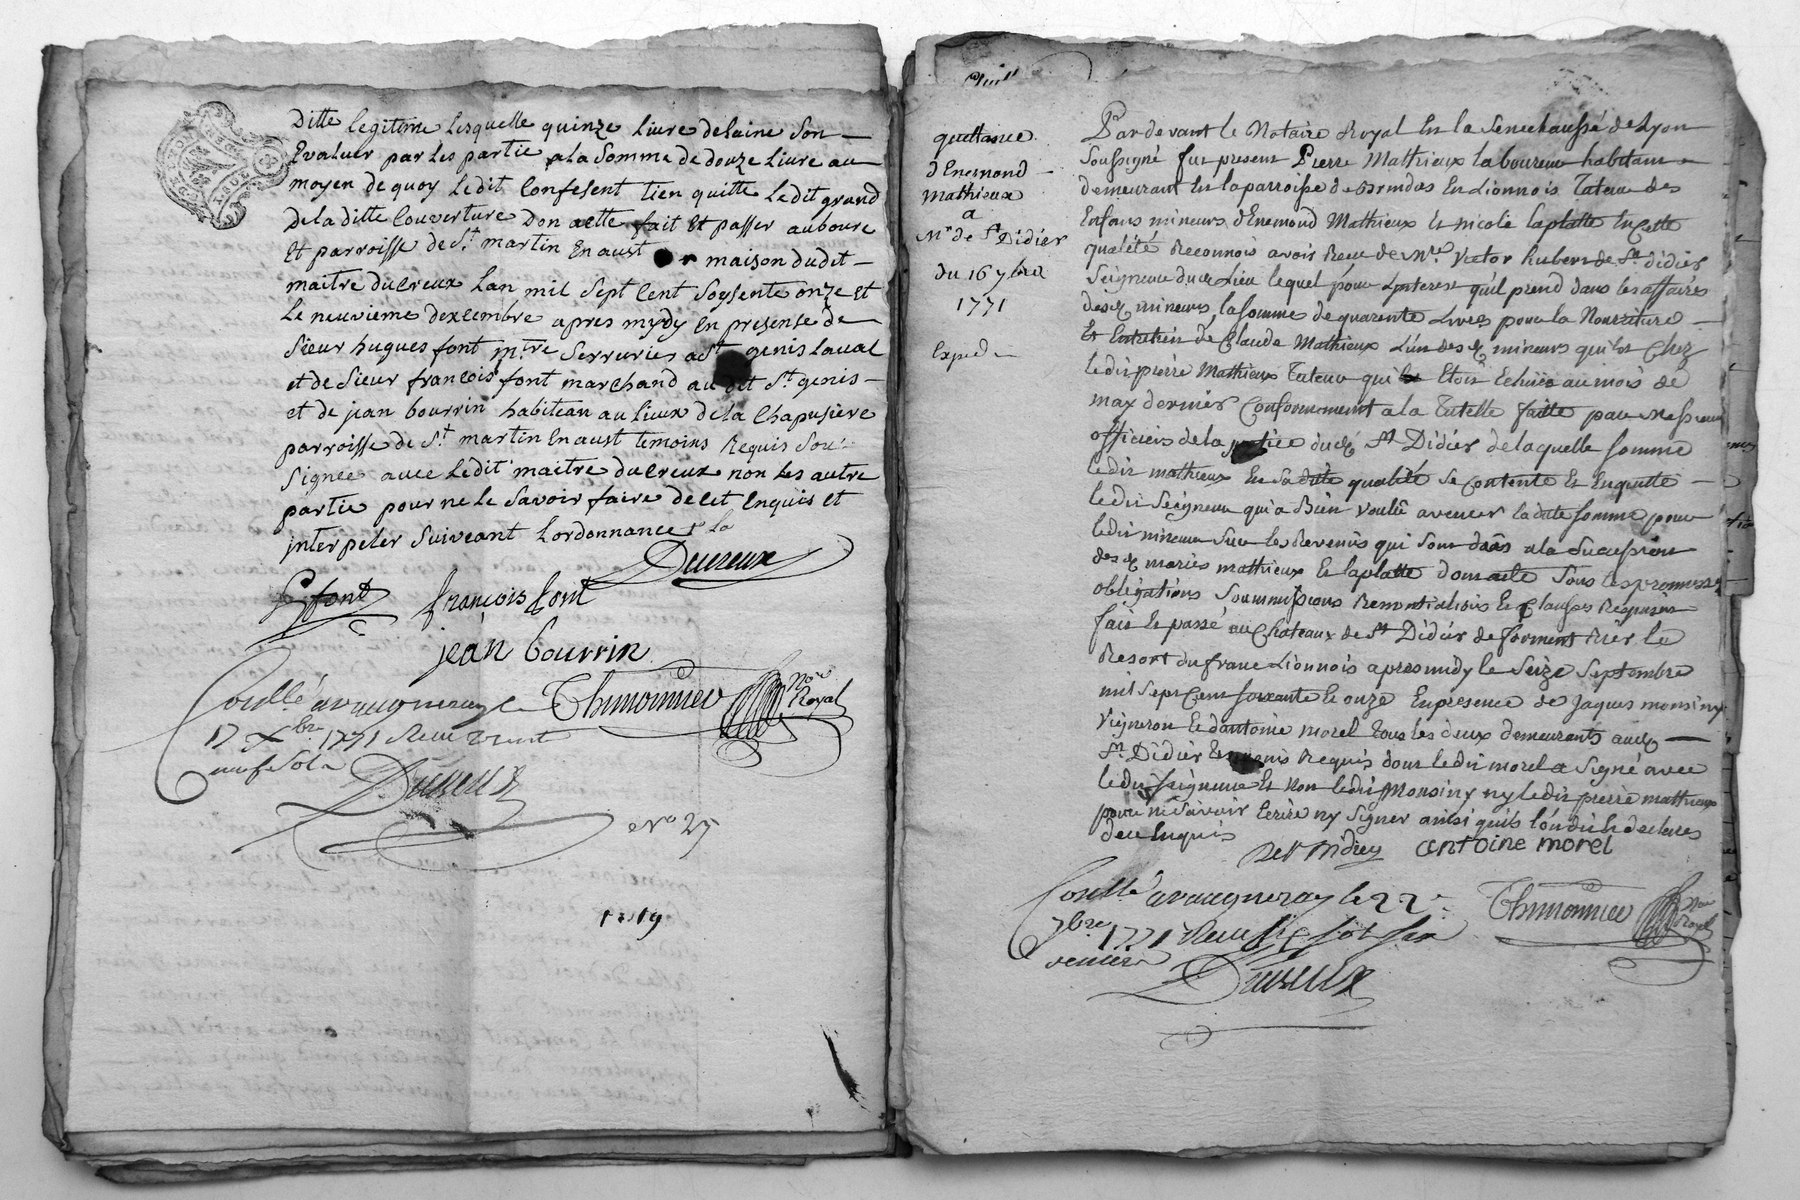 Ditte legitime lesquelle quinze livre delaine Son
Evaluer par les partie ala Somme de douze Livre au
moyen de quoy ledit Confesent tien quitte ledit grand
De la ditte Couverture Don acte fait Et passer au bourc
Et parroisse de St martin En aust maison dudit
maitre ducreux Lan mil Sept Cent Soysente onze et
Le neuvieme dexcembre apres mydy En presense de
Sieur hugues font mtre Serrurier a St genis Laval
et de Sieur francois font marchand au dit St genis
et de jean bourrin habitean au Lieux de la Chapusiere
parroisse de St martin En aust temoins Requis Sou
Signee avec Ledit maitre ducreux non les autre
partie pour ne le Savoir faire de cet Enquis et
interpeler Suiveant Lordonnance
Ducreux
font françois font
jean bourrin
Conllé a vaugneray le Thimonnier Nore Royal
17 Xbre 1771 Receu vint
neuf Sols
Ducreux
No 25
1719
quittance
d'Enemond
Mathieux
a
Mr de St Didier
du 16 7bre
1771
Exped
Par devant le Notaire Royal En la Senechaussé de Lyon
Soussigné fut present Pierre Mathieux laboureur habitant
demeurant En la parroisse de En Lionnois Tuteur des
Enfans mineurs d'Enemond Mathieux et nicole laplatte En Cette
qualité Reconnois avoir Receu de Mre Victor hubert de St didier
Seigneur dud Lieu lequel pour Linterest qu'il prend dans les affaires
desd mineurs, la somme de quarente Livres pour la Nourriture
Et Entretien de Claude Mathieux L'un desd mineurs qui est Chez
ledit pierre Mathieux Tuteur qui Etoit Echuée au mois de
may dernier Conformement a la Tutelle faitte par Messieurs
officiers de la justice dud St Didier de laquelle somme
ledit mathieux En Sa dite qualité Se Contente Et En quitte
ledit Seigneur qui a Bien voulu avencer la dite somme pour
ledit mineur Sur les Revenus qui Sont dans a la Succession
desd mariés mathieux Et laplatte dont acte Sous les promesses
obligations Soummissions Renontiations Et Clauses Requises
fait Et passé au Chateaux de St Didier de forment Rier le
Resort du franc Lionnois apres midy le Seize Septembre
mil Sept Cent soixante Et onze En presence de Jaques monsiny
Vigneron Et d'antoine morel tous les deux demeurants aud
St Didier temoins Requis dont ledit morel a Signé avec
ledit Seigneur Et Non ledit Monsiny ny ledit pierre mathieux
pour ne Savoir Ecrire ny Signer ainsi qu'ils l'ont dit Et declarés
de ce Enquis
De St Didier antoine morel
Conllé a vaugneray le 22e Thimonnier Nore Royal
7bre 1771 Receu six sols six
deniers
Ducreux